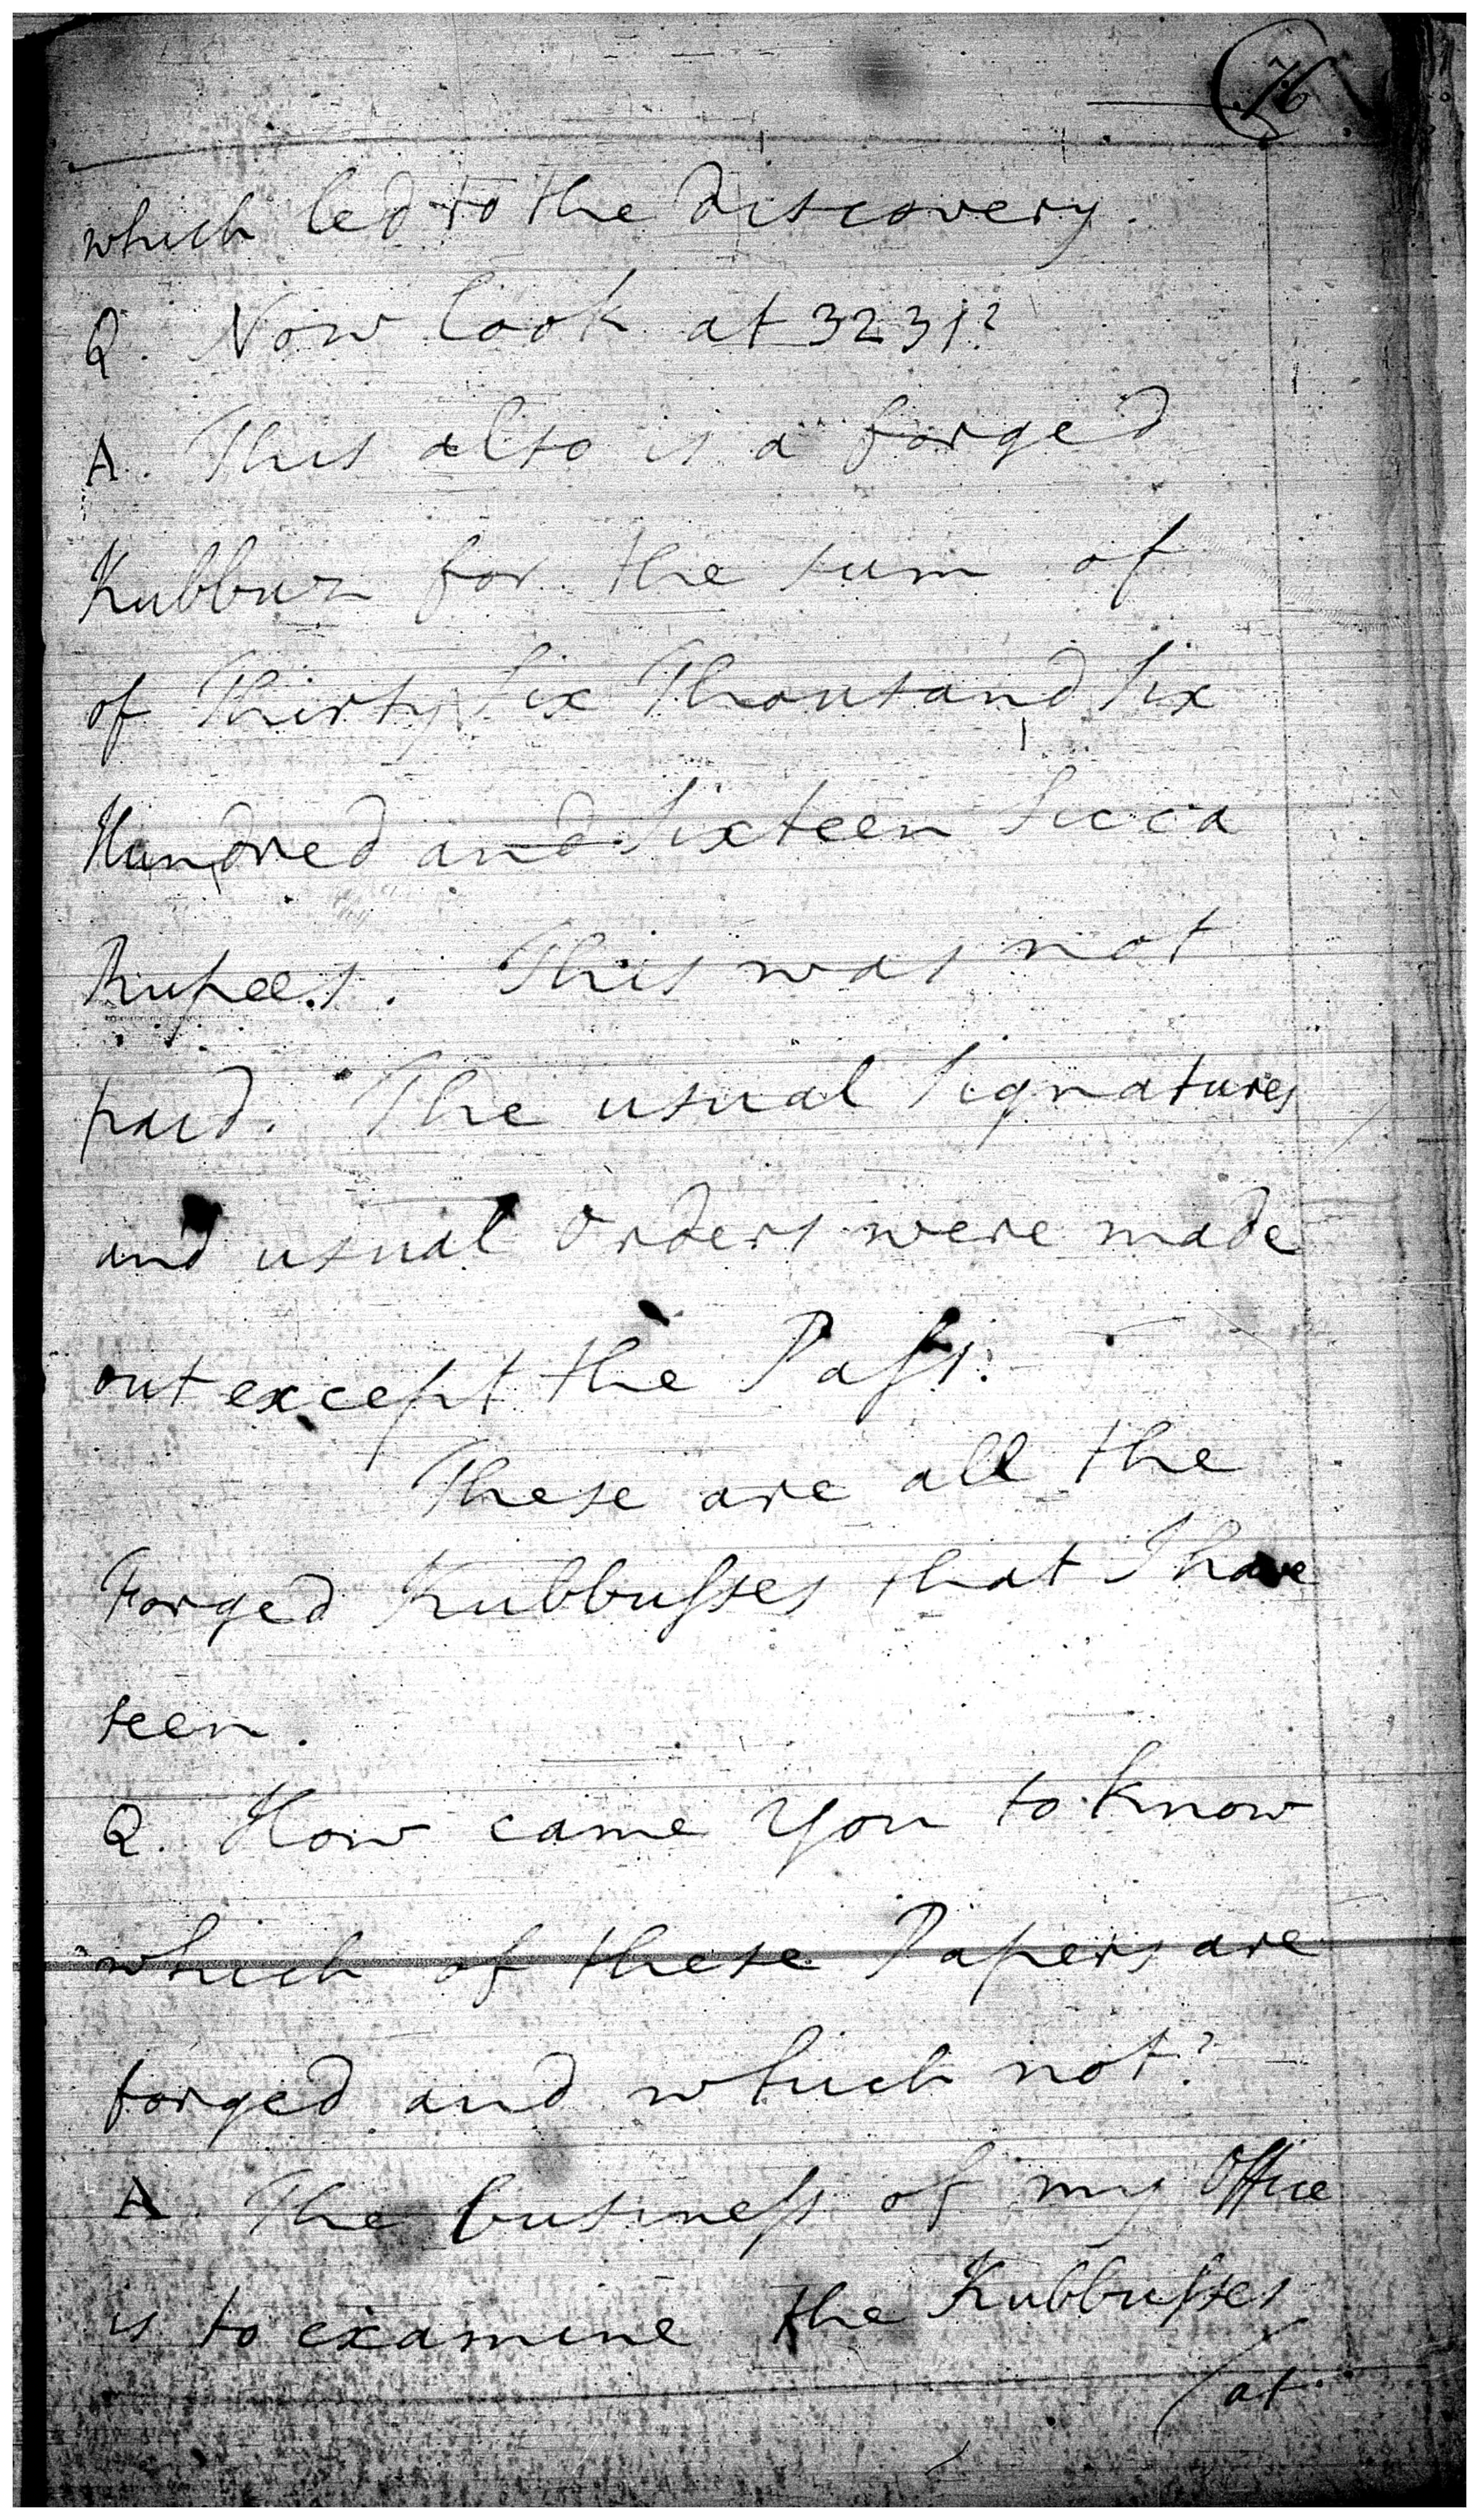 76
which led to the discovery.
Q. Now look at 3231?
A. This also is a forged
Kubbuz for the sum of
of Thirty Six Thousand Six
Hundred and Sixteen Sicca
Rupees. This was not
paid. The usual Signatures
and usual Orders were made
out except the Paſs.
These are all the
Forged Kubbuſses that I have
seen.
Q. How came You to know
which of these Papers are
forged and which not?
A. The busineſs of my Office
is to examine the Kubbuſses
/at